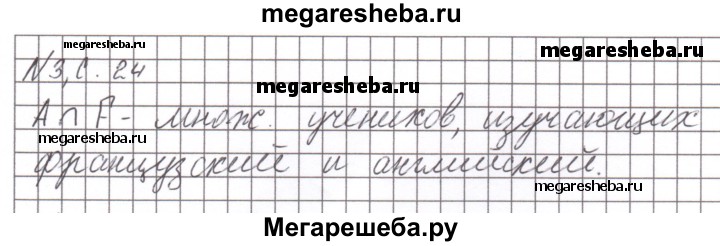 megaresheba.ru
megaresheba.ru
megaresheba.ru
N 3, С. 24
megaresheba.ru
A ∩ F - множ. учеников, изучающих
megaresheba.ru
французский и английский.
megaresheba.ru
Мегарешеба.ру